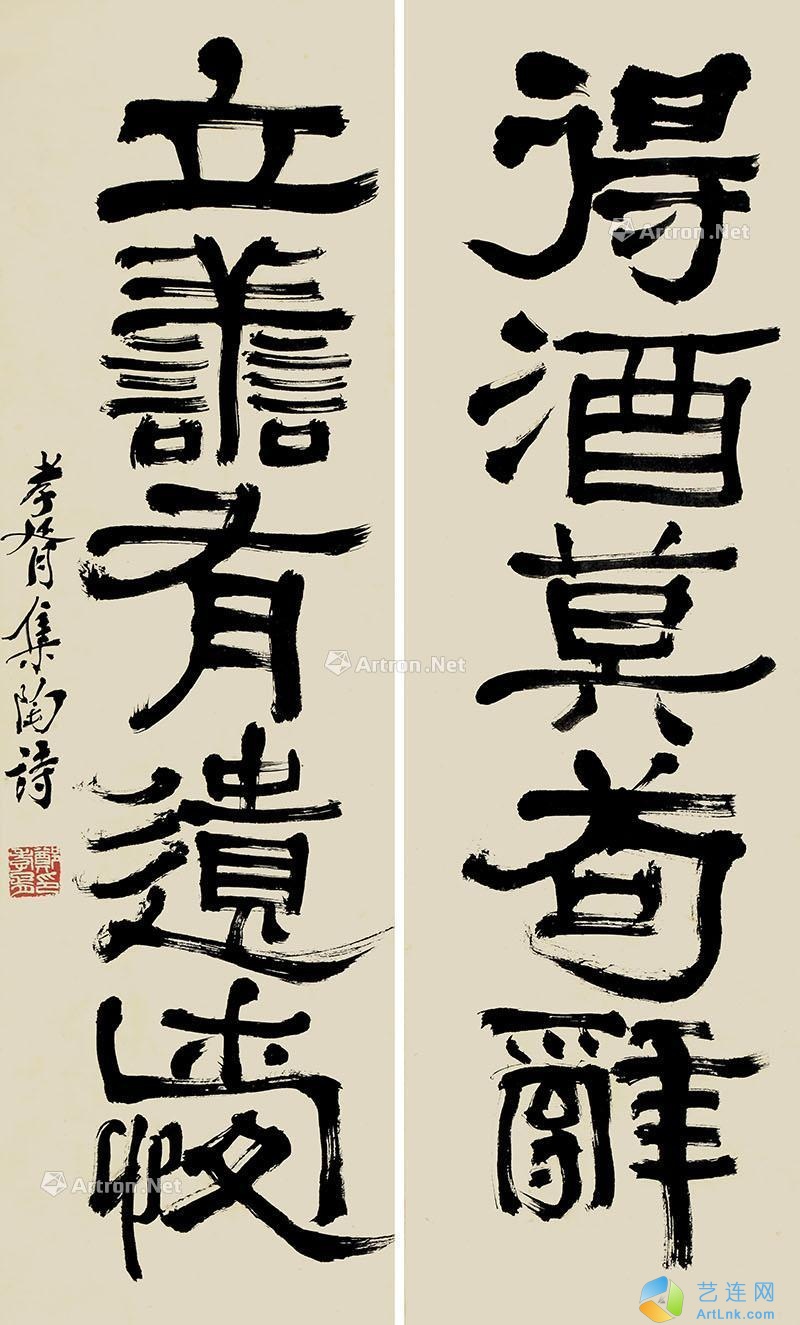 得酒莫苟辭
立善有遺愛
孝胥集陶詩
鄭印孝胥
Artron.Net
Artron.Net
Artron.Net
艺连网
ArtLnk.com